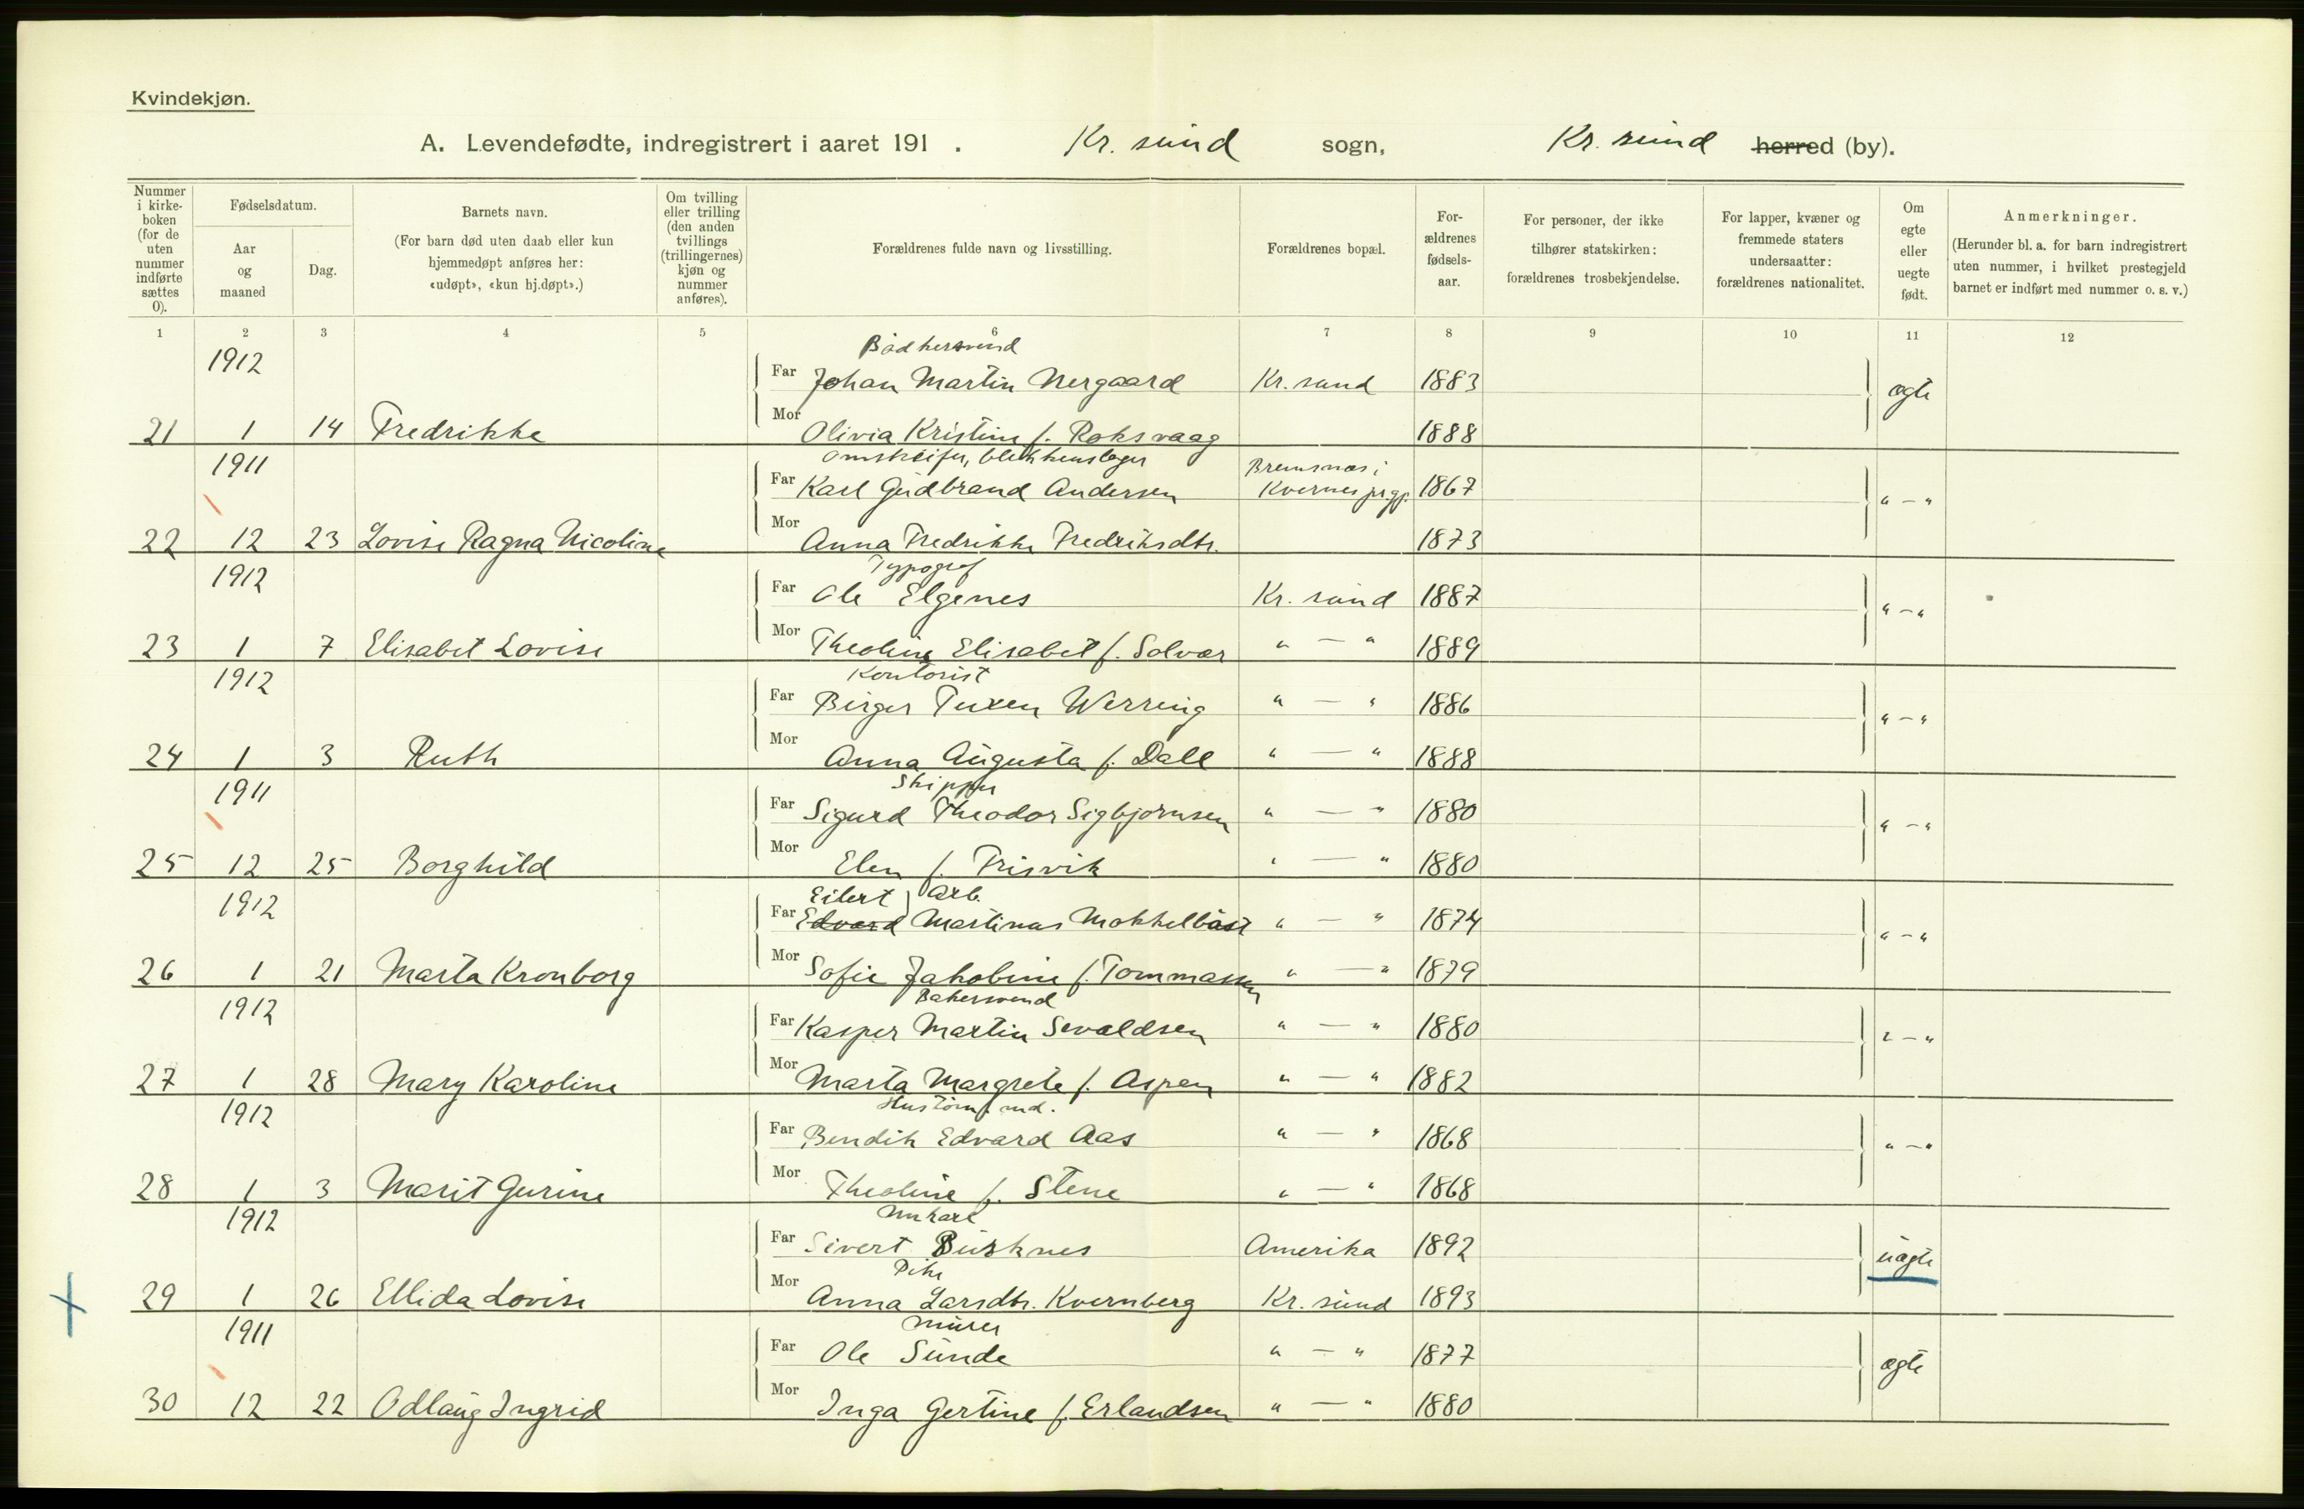 Kvindekjøn.
A. Levendefødte, indregistrert i aaret 191 . Kr. sund sogn, Kr. sund herred (by).
Nummer i kirke-boken (for de uten nummer indførte sættes 0).
Fødselsdatum.
Aar og maaned
Dag.
Barnets navn.
(For barn død uten daab eller kun hjemmedøpt anføres her: «udøpt», «kun hj.døpt».)
Om tvilling eller trilling (den anden tvillings (trillingernes) kjøn og nummer anføres).
Forældrenes fulde navn og livsstilling.
Forældrenes bopæl.
For-ældrenes fødsels-aar.
For personer, der ikke tilhører statskirken: forældrenes trosbekjendelse.
For lapper, kvæner og fremmede staters undersaatter: forældrenes nationalitet.
Om egte eller uegte født.
Anmerkninger.
(Herunder bl. a. for barn indregistrert uten nummer, i hvilket prestegjeld barnet er indført med nummer o. s. v.)
1 2 3 4 5 6 7 8 9 10 11 12
Bødkersvend
1912 Far Johan Martin Nergaard Kr. sund 1883 ægte
21 1 14 Fredrikke Mor Olivia Kristine f. Roksvaag 1888
blikkenslager Bremsnæs i
1911 Far Karl Gudbrand Andersen Kvernes prgj. 1867 " — "
22 12 23 Lovise Ragna Nicoline Mor Anna Fredrikke Fredriksdtr. 1873
Typograf
1912 Far Ole Elgenes Kr. sund 1887 " — "
23 1 7 Elisabet Lovise Mor Theoline Elisabet f. Solvær " — " 1889
Kontorist
1912 Far Birger Tuxen Werring " — " 1886 " — "
24 1 3 Ruth Mor Anna Augusta f. Dall " — " 1888
Skipper
1911 Far Sigurd Theodor Sigbjørnsen " — " 1880 " — "
25 12 25 Borghild Mor Elen f. Frisvik " — " 1880
Eilert ) Arb.
1912 Far Edvard Martinas Mokkelbåst " — " 1874 " — "
26 1 21 Marta Kronborg Mor Sofie Jakobine f. Tommassen " — " 1879
Bakersvend
1912 Far Kasper Martin Sevaldsen " — " 1880 " — "
27 1 28 Mary Karoline Mor Marta Margrete f. Aspen " — " 1882
Hustømmermd.
1912 Far Bendik Edvard Aas " — " 1868 " — "
28 1 3 Marit Gurine Mor Theoline f. Stene " — " 1868
Unkarl
1912 Far Sivert Busknes Amerika 1892 uægte
Pike
29 1 26 Ellida Lovise Mor Anna Larsdtr. Kvernberg Kr. sund 1893
Murer
1911 Far Ole Sunde " — " 1877 ægte
30 12 22 Odlaug Ingrid Mor Inga Gertine f. Erlandsen " — " 1880